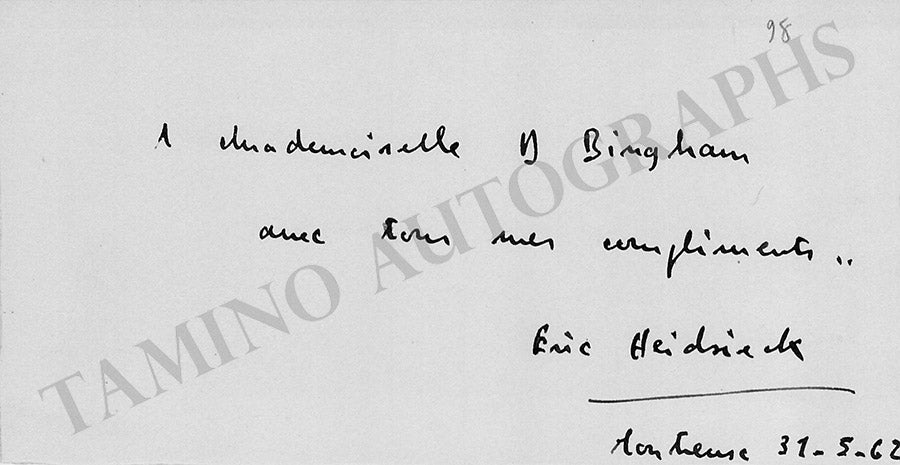 98
A Mademoiselle D Bingham
avec tous mes compliments..
Eric Heidsieck
Toulouse 31-5-62
TAMINO AUTOGRAPHS